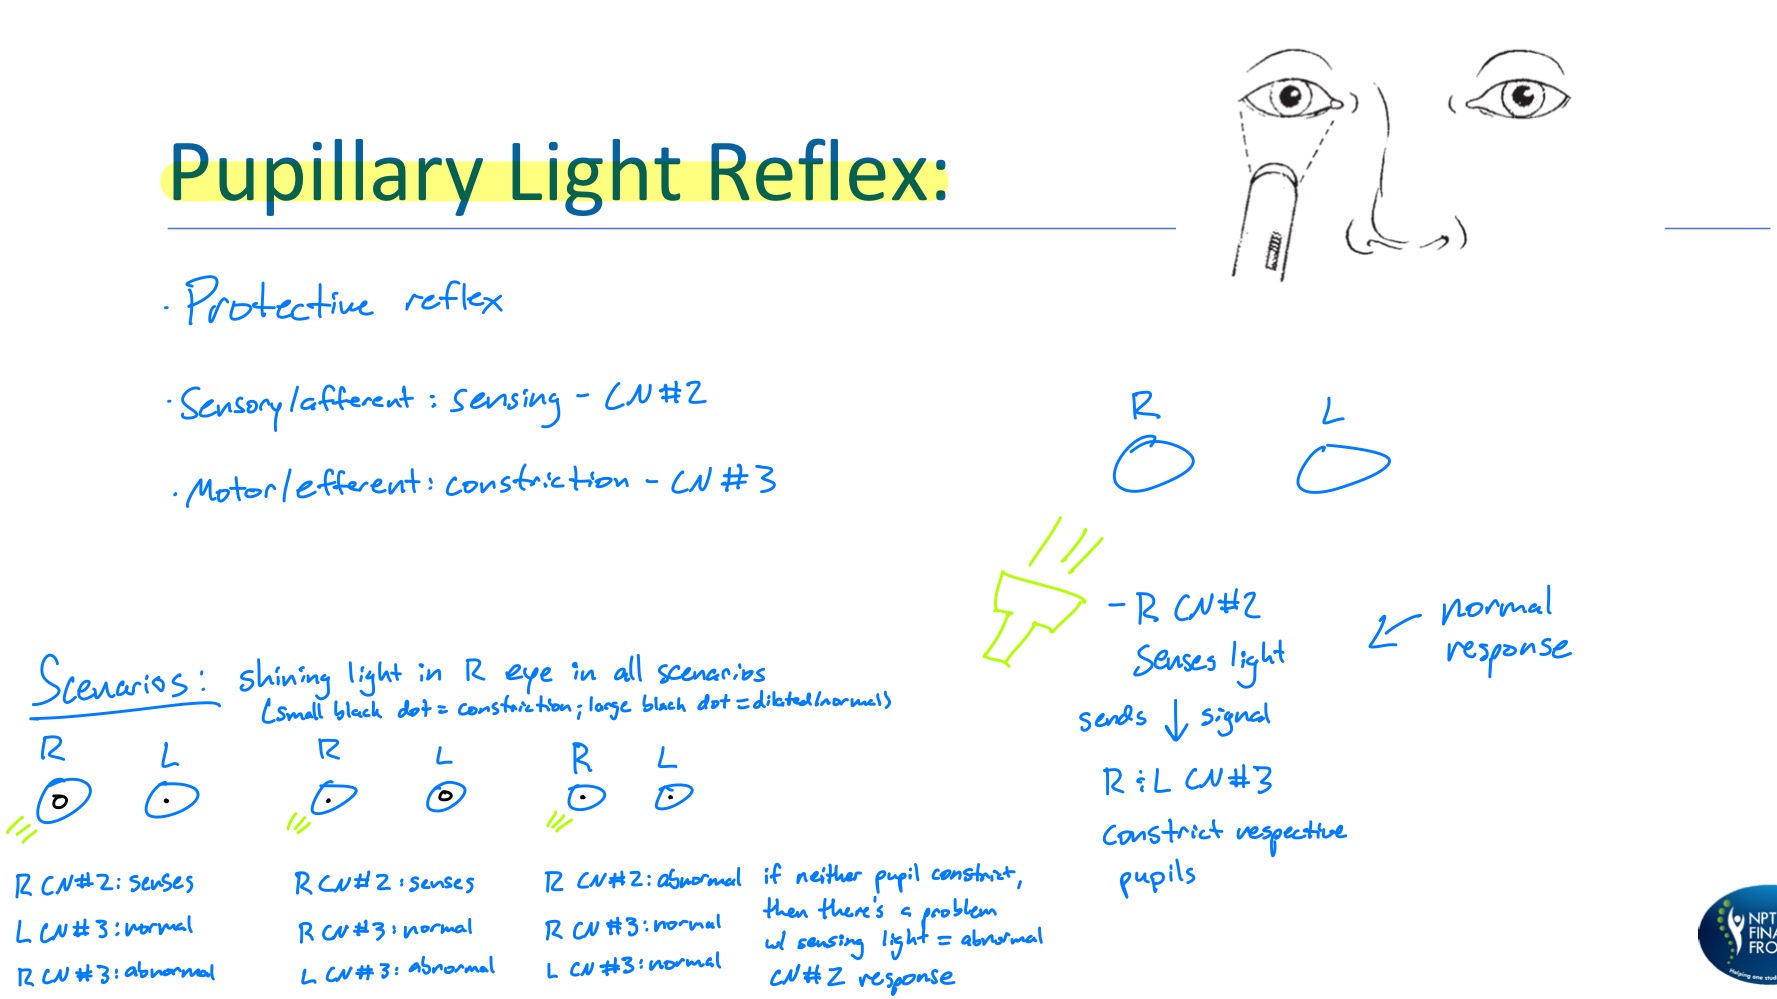 Pupillary Light Reflex:
· Protective reflex
· Sensory/afferent: sensing - CN#2
· Motor/efferent: constriction - CN #3
R L
- R CN#2
senses light
sends ↓ signal
R & L CN#3
constrict respective
pupils
← normal
response
Scenarios: shining light in R eye in all scenarios
(small black dot = constriction; large black dot = dilated/normal)
R L
R CN#2: senses
L CN#3: normal
R CN#3: abnormal
R L
R CN#2: senses
R CN#3: normal
L CN#3: abnormal
R L
R CN#2: abnormal
R CN#3: normal
L CN#3: normal
if neither pupil constrict,
then there's a problem
w/ sensing light = abnormal
CN#2 response
NPT
FINA
FRO
Helping one stud